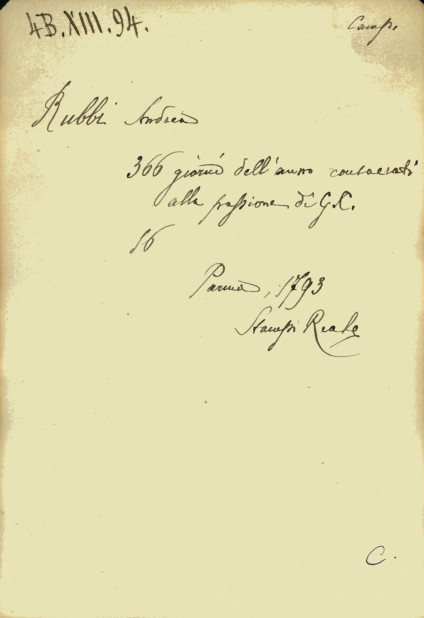 4B.XIII.94.
Camp.
Rubbi Andrea
366 giorni dell'anno consacrati
alla passione di G.C.
16
Parma, 1793
Stamp. Reale
C.